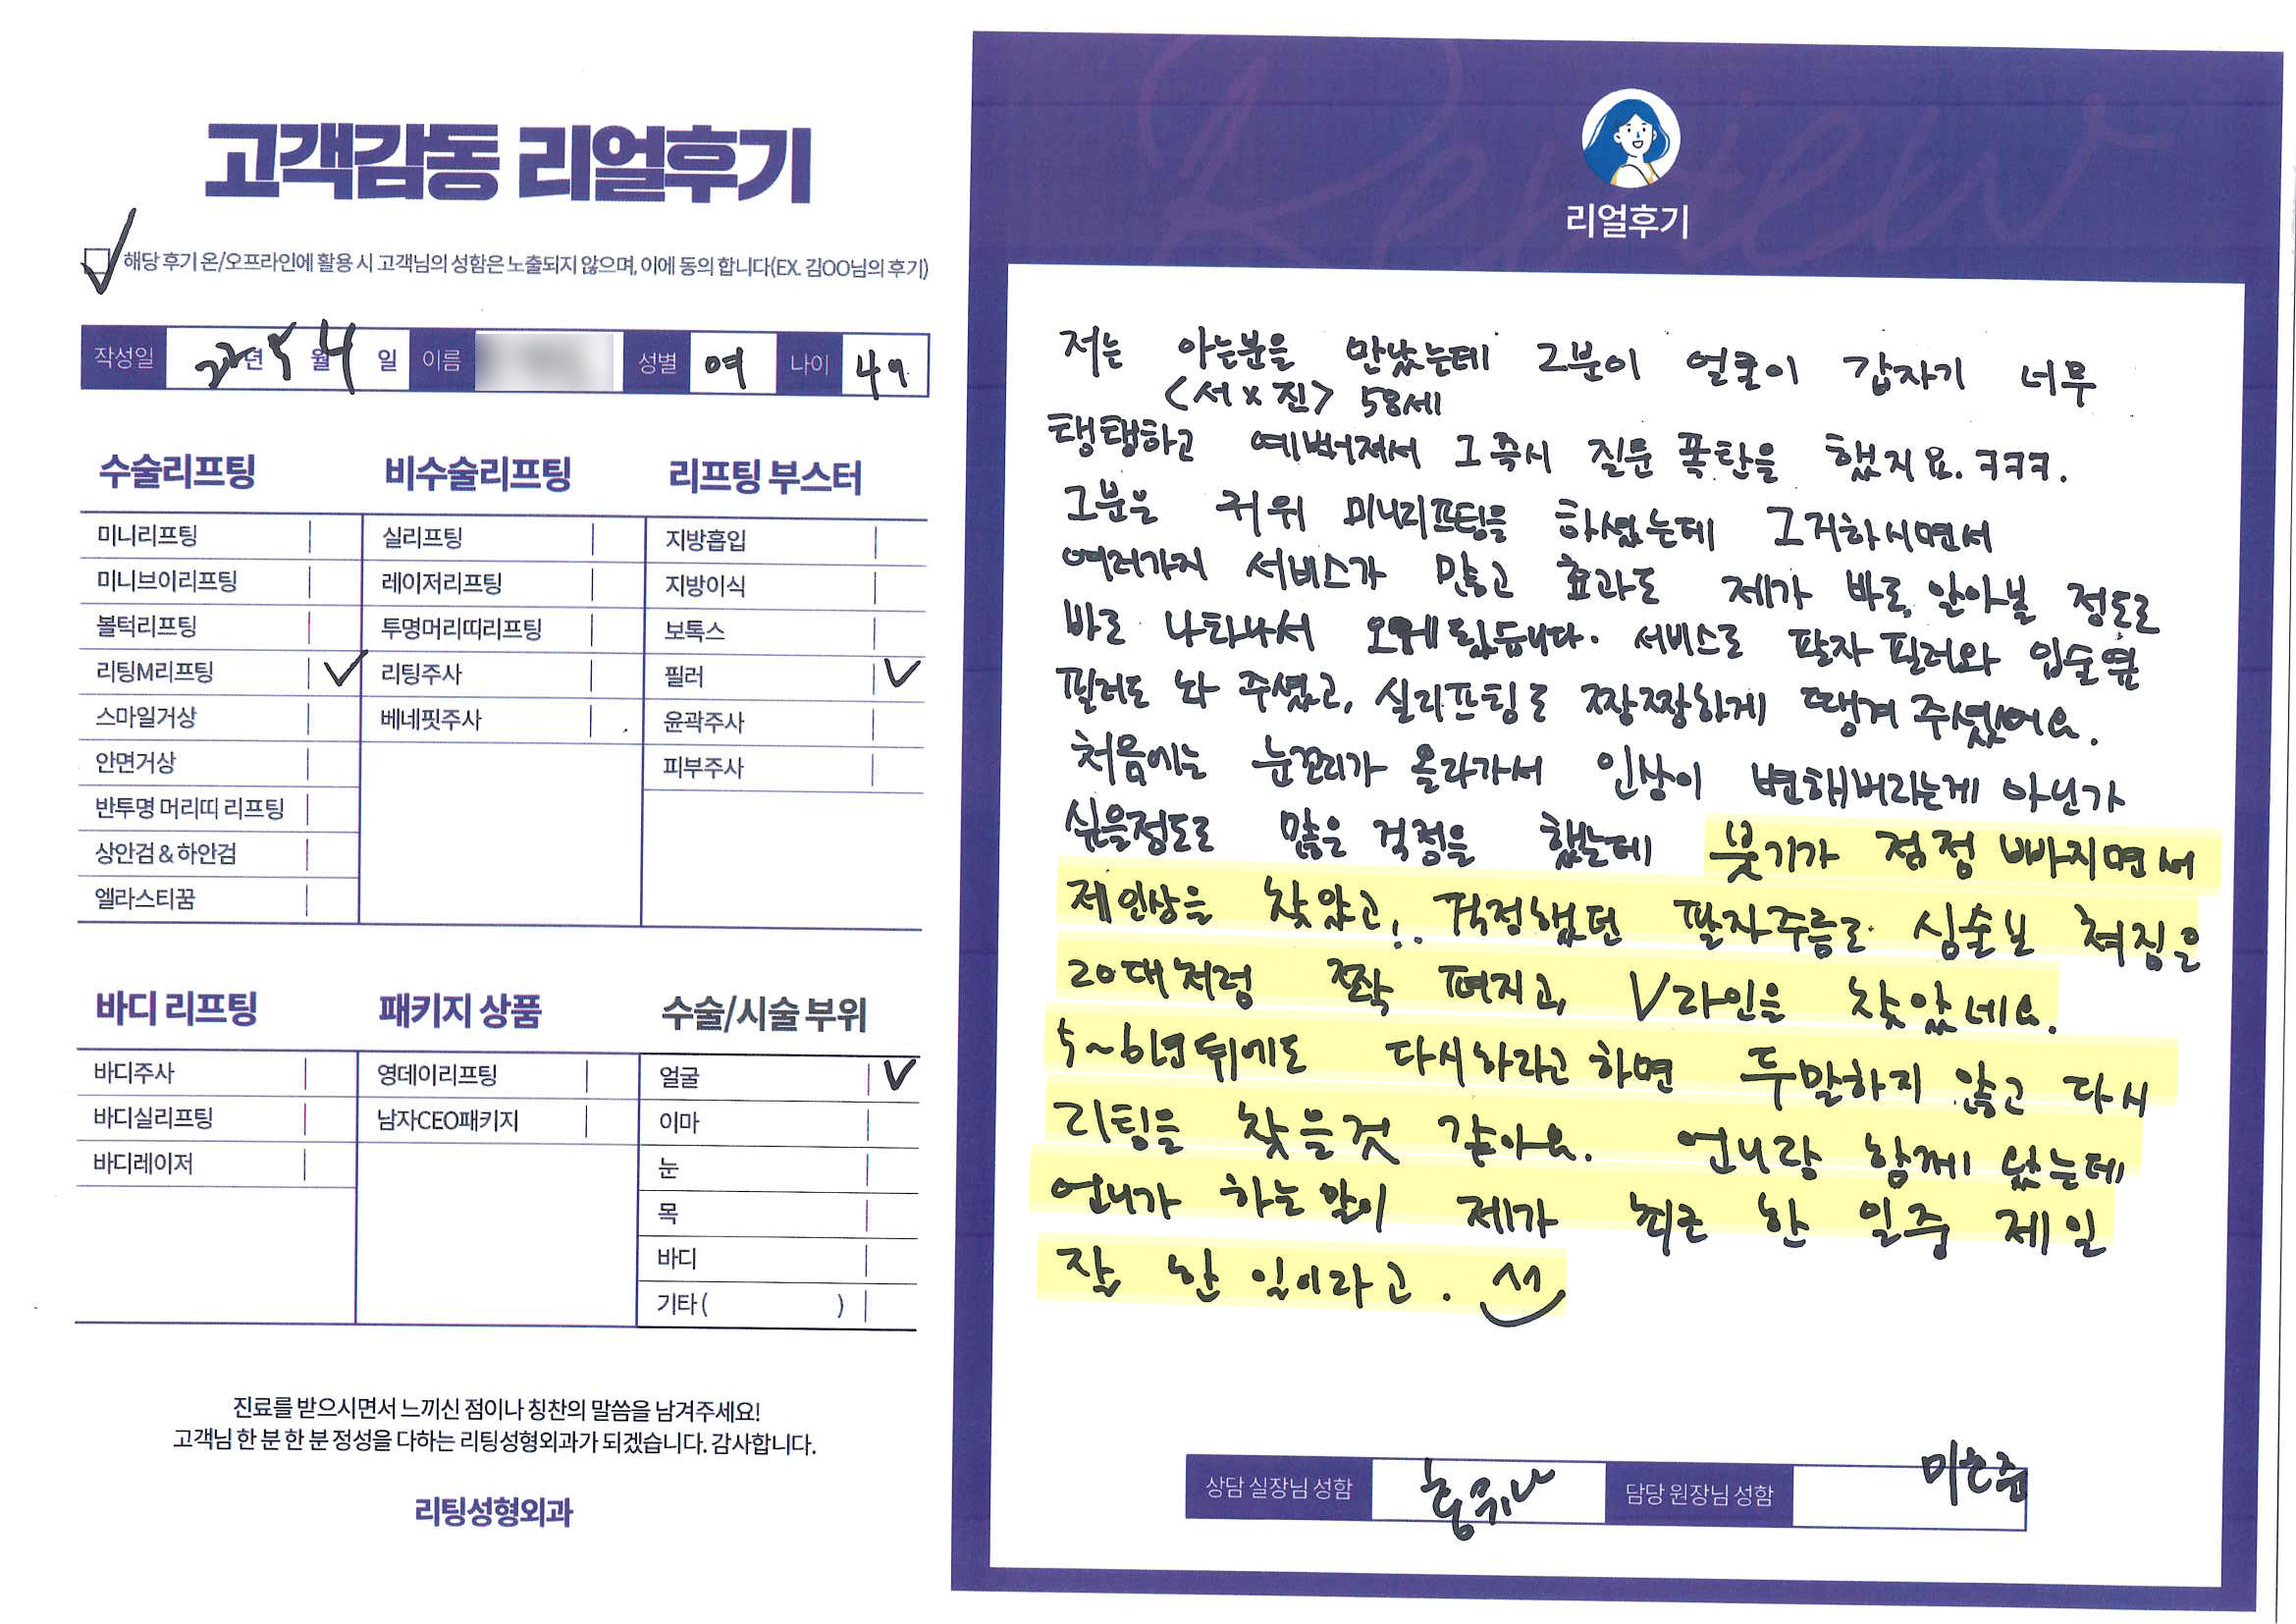 고객감동 리얼후기
해당 후기 온/오프라인에 활용 시 고객님의 성함은 노출되지 않으며, 이에 동의 합니다(EX. 김OO님의 후기)
작성일 22년 5월 4일 이름 성별 여 나이 49
수술리프팅
미니리프팅
미니브이리프팅
볼턱리프팅
리팅M리프팅
스마일거상
안면거상
반투명 머리띠 리프팅
상안검&하안검
엘라스티꿈
비수술리프팅
실리프팅
레이저리프팅
투명머리띠리프팅
리팅주사
베네핏주사
리프팅 부스터
지방흡입
지방이식
보톡스
필러
윤곽주사
피부주사
바디 리프팅
바디주사
바디실리프팅
바디레이저
패키지 상품
영데이리프팅
남자CEO패키지
수술/시술 부위
얼굴
이마
눈
목
바디
기타( )
진료를 받으시면서 느끼신 점이나 칭찬의 말씀을 남겨주세요!
고객님 한 분 한 분 정성을 다하는 리팅성형외과가 되겠습니다. 감사합니다.
리팅성형외과
Review
리얼후기
저는 아는분을 만났는데 그분이 얼굴이 갑자기 너무
<서x진> 58세
탱탱하고 예뻐져서 그 즉시 질문 폭탄을 했지요. ㅋㅋㅋ.
그분은 귀위 미니리프팅을 하셨는데 그거하시면서
여러가지 서비스가 많고 효과도 제가 바로 알아볼 정도로
바로 나타나서 오게 됬습니다. 서비스로 팔자 필러와 입술옆
필러도 놔 주셨고, 실리프팅도 짱짱하게 땡겨 주셨어요.
처음에는 눈꼬리가 올라가서 인상이 변해버리는게 아닌가
싶을정도로 많은 걱정을 했는데 붓기가 점점 빠지면서
제 인상을 찾았고!.. 걱정했던 팔자주름로 심술보 쳐짐은
20대처럼 쫙 펴지고, V라인을 찾았네요.
5~6년뒤에도 다시하라고 하면 두말하지 않고 다시
리팅을 찾을것 같아요. 언니랑 함께 왔는데
언니가 하는 말이 제가 최근 한 일중 제일
잘 한 일이라고.
상담 실장님 성함 담당 원장님 성함